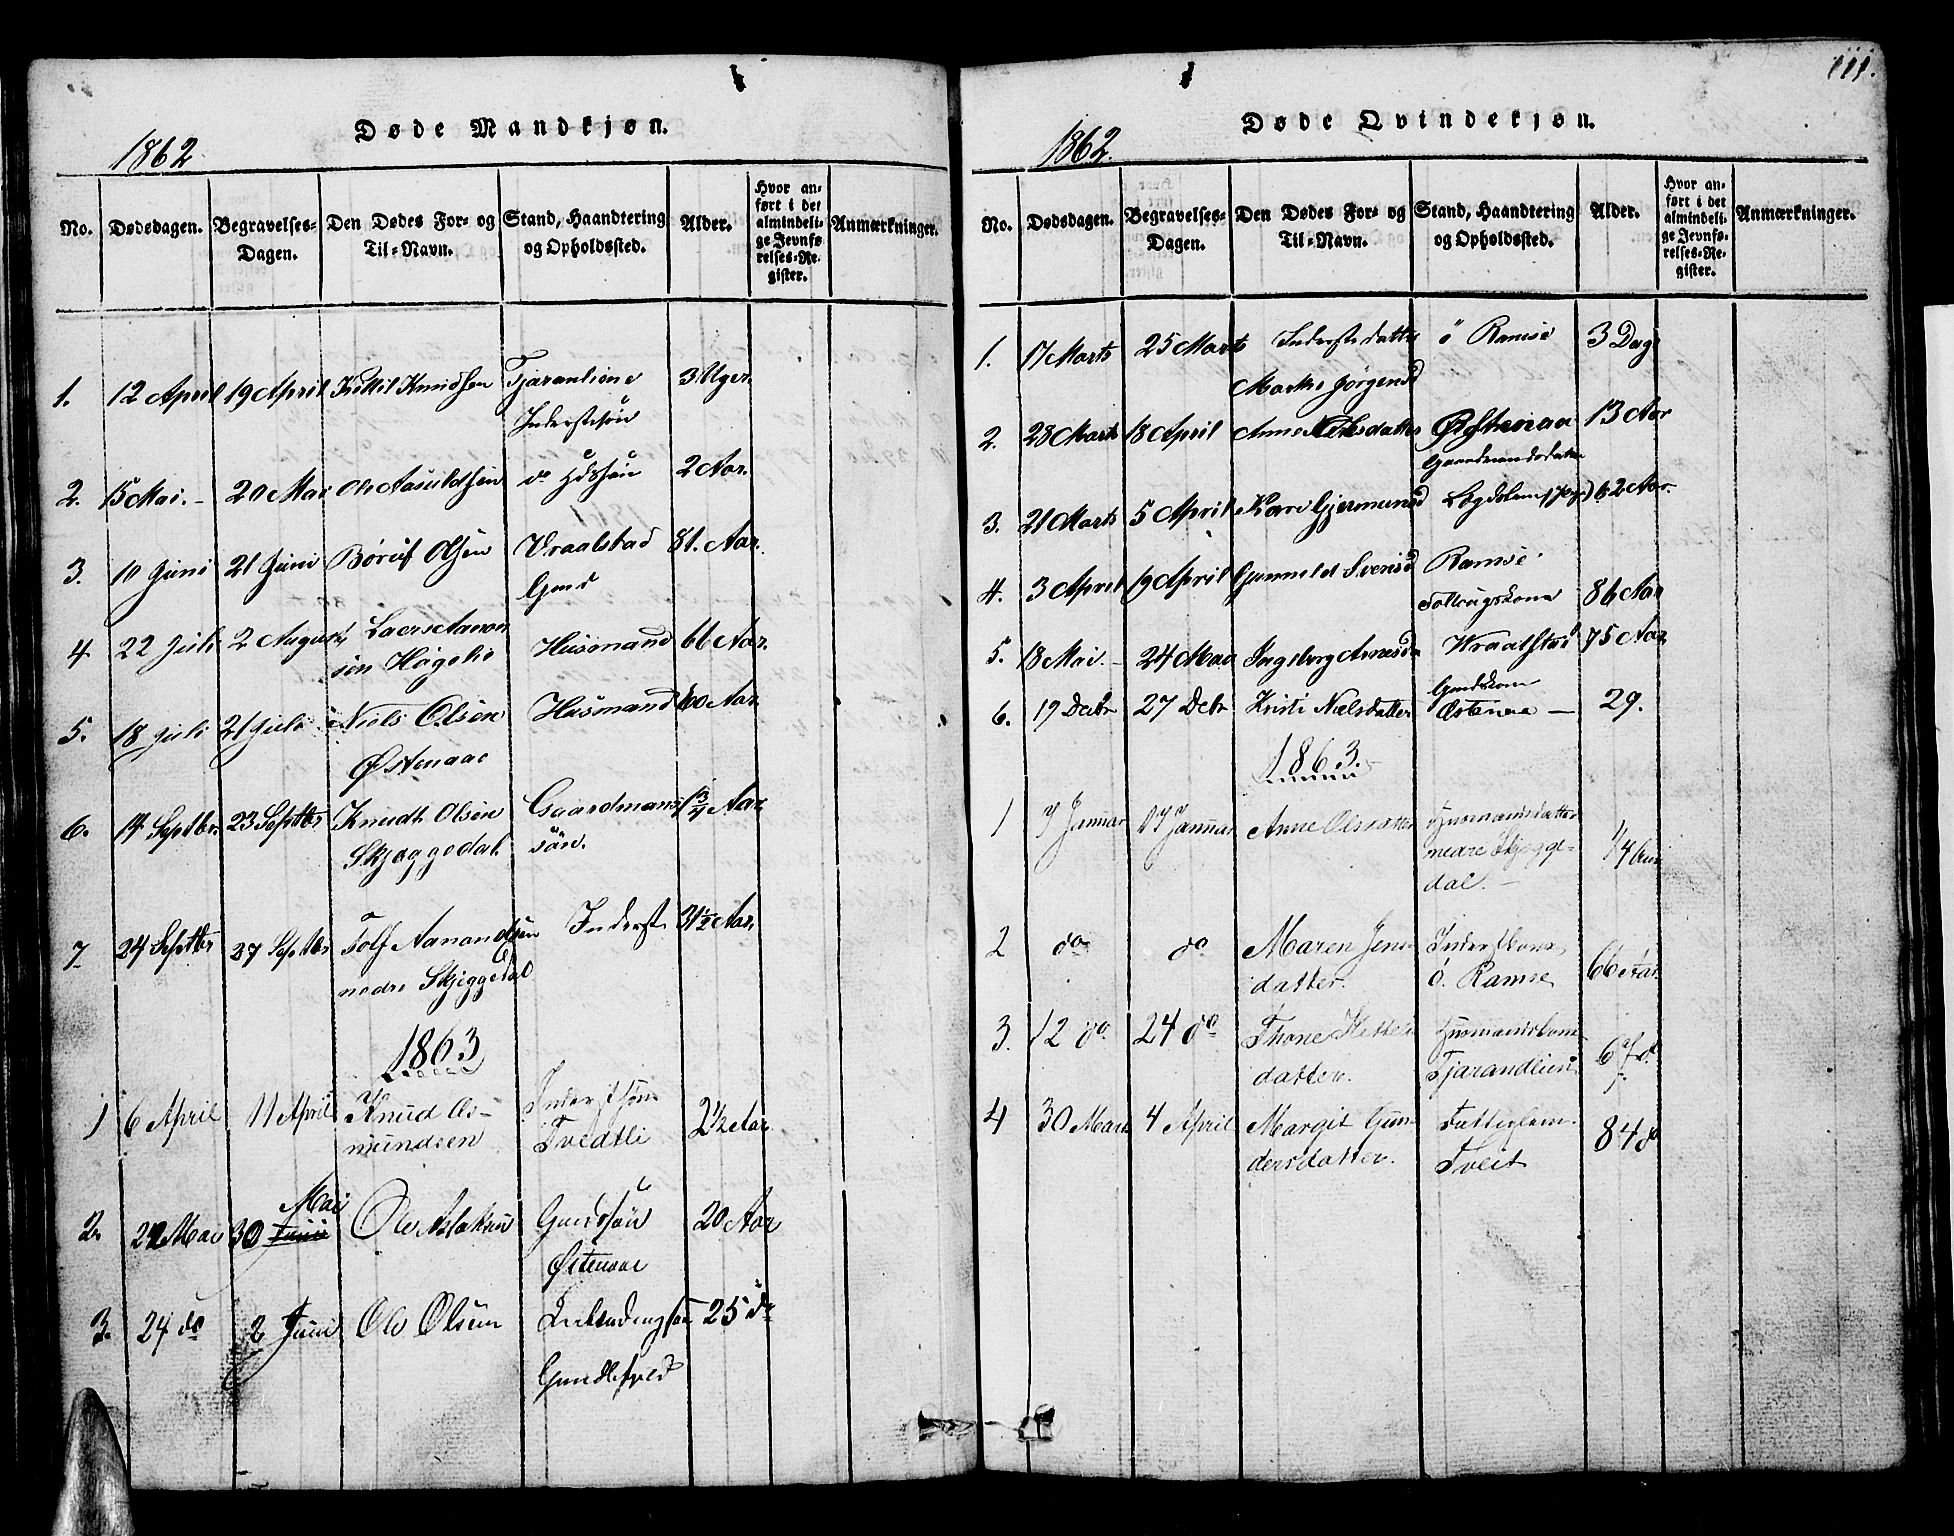 Døde Mandkjøn.
1862.
No. Dødsdagen. Begravelses-Dagen. Den Dødes For- og Til-Navn. Stand, Haandtering og Opholdssted. Alder. Hvor anført i det almindelige Jevnførelses-Register. Anmærkninger.
1. 12 April 19 April Kittil Knudsen Tjarantione 3 Uger.
Inderstesön
2. 15 Mai. - 20 Mai Ole Aasuldsen do 2 Aar.
3. 10 Juni 21 Juni Børuf Olsen Vraalstad 81. Aar.
Gmd
4. 22 Juli 2 August Laers Aanon
sen Høgelie Husmand 66 Aar.
5. 18 Juli 21 Juli Niels Olsen Husmand 60 Aar
Østenaae
6. 14 Septbr. 23 Septbr Knudt Olsen Gaardmands 1 3/4 Aar
Skjeggedal. sön.
7 24 Septbr 27 Septbr Tolf Aanondsen Inderst 31 1/2 Aar.
nedre Skjeggedal
1863
1 6 April 11 April Knud As- Inderstsøn
mundsen Tvedtli 2 1/2 Aar
Mai
2. 22 Mai 30 Juni Ole Aslaksen Gmdssön 20 Aar
Østenaae
3. 24 do 2 Juni Ole Olsen 25 do
111.
Døde Qvindekjøn.
1862.
No. Dødsdagen. Begravelses-Dagen. Den Dødes For- og Til-Navn. Stand, Haandtering og Opholdssted. Alder. Hvor anført i det almindelige Jevnførelses-Register. Anmærkninger.
1. 17 Marts 25 Marts Inderstedatter ö Ramse 3 Dage
Marthe Jörgensd
2. 28 Marts 18 April Anne Nielsdatter Østenaa 13 Aar
Gaardmandsdatter
3. 21 Marts 5 April Kari Gjermunsd Lægdslem 62 Aar.
4. 3 April 19 April Gunnild Svensd Ramse
Follougskone 86 Aar
5. 18 Mai. - 24 Mai Ingeborg Arnesd Wraalstad 75 Aar
Gmdskone
6. 19 Decbr 27 Debr Kristi Nielsdatter Østenaae - 29.
1863.
1 7 Januar 17 Januar Anne Olsdatter Husmandsdatter
nedre Skjegge- 1/4 Aar
dal. -
2 do do Maren Jens- Inderstkone,
datter. ö. Ramse 66 Aar.
3. 12 do 24 do Thone Kettels Husmandskone
datter. Tjarandlien 67 do
4 30 Marts 4 April Margit Gun- Fattiglem
dersdatter. Tveit 84 do